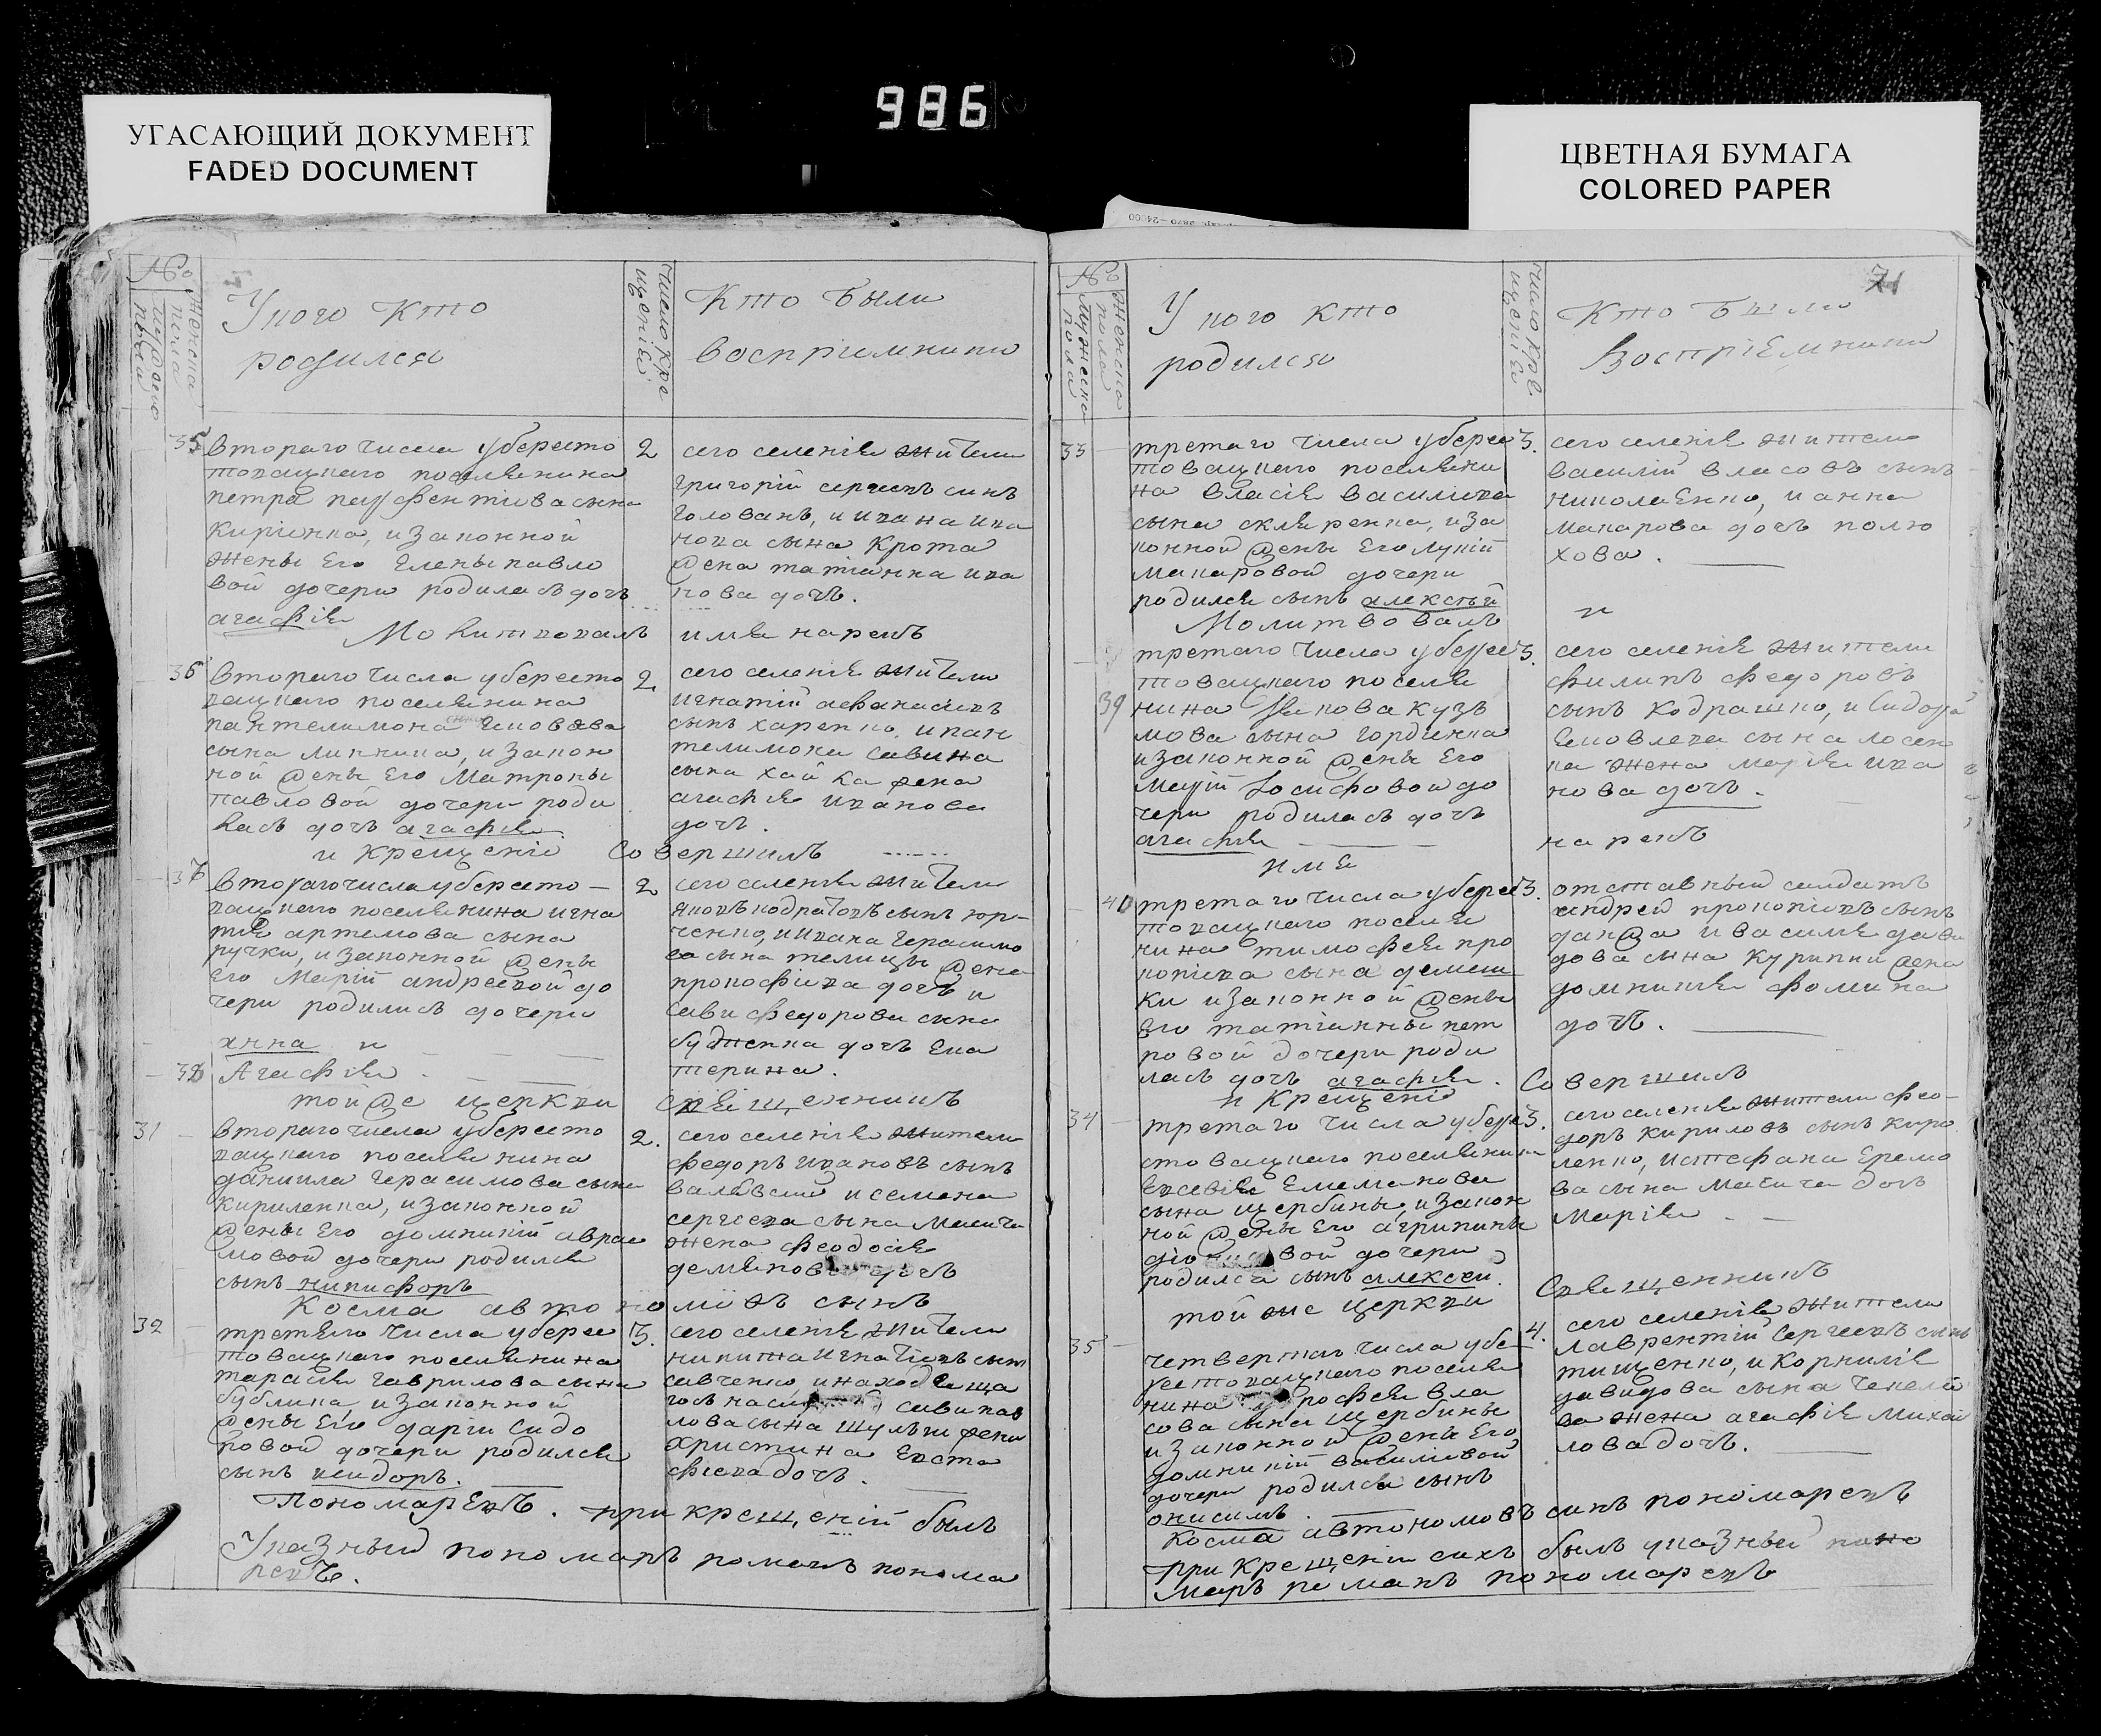 УГАСАЮЩИЙ ДОКУМЕНТ
FADED DOCUMENT
986
ЦВЕТНАЯ БУМАГА
COLORED PAPER
№
женска пола
мужеска пола
У кого кто
родился
число кре
щенія
Кто были
восприемники
35 втораго числа убересто
товацкаго поселянина
петра сына
Киріенка, изаконной
жены Его Елены павло
вой дочери родиласъ дочъ
агафія
2 сего селенія жители
григорій сергеевъ синъ
голованъ, и ивана ива
нова сына Крота
жена татіанна ива
нова дочъ.
Молитвовалъ имя нарекъ
36 втораго числа убересто
вацкаго поселянина
пантелимона
сына липника, изакон
ной жены Его Матроны
павловой дочери роди
ласъ дочъ агафія
2. сего селенія жители
игнатій афанасіевъ
сынъ харенко, ипан
телимона савина
сына хайла жена
агафія иванова
дочъ.
и крещеніе Совершилъ
37 втораго числа убересто
вацкаго поселянина игна
тія артемова сына
ручки, изаконной жены
Его Маріи андреевой до
чери родились дочери
анна и
38 Агафія
2 сего селенія жители
яковъ кодратовъ сынъ юр
ченко, и ивана Герасимо
ва сына телицы жена
дочъ и
сави федорова сына
дочъ Ека
терина.
той же церкви Священникъ
31 втораго числа убересто
вацкаго поселянина
даниила Герасимова сына
кириленка, изаконной
жены Его домникіи авраа
мовой дочери родился
сынъ никифоръ
2. сего селенія жители
федоръ ивановъ сынъ
и семена
сергеева сына
жена феодосія
дочъ
Косма автономовъ сынъ
32 третяго числа уберес
товацкаго поселянина
тарасія гаврилова сына
бублика, изаконной
жены Его даріи Сидо
ровой дочери родился
сынъ исидоръ.
3. сего селенія жители
никита игнатіевъ сынъ
савченко, инаходяща
гося сави пав
лова сына шульги жена
христина Евста
фіева дочъ.
Пономаревъ. при крещеній былъ
Указный пономаръ романъ понома
ревъ.
71
№
женска пола
мужеска пола
У кого кто
родился
число кре
щеніе
Кто были
Воспріемники
33 третаго числа уберес
товацкаго поселяни
на власія василіева
сына скляренка, иза
конной жены Его лукіи
макаровой дочери
родился сынъ алексѣй
3. сего селенія жители
василій власовъ сынъ
николаенко, и анна
макарова дочъ полю
хова.
Молитвовалъ и
39 третаго числа уберес
товацкаго поселя
нина якова кузъ
мова сына гордіенка
изаконной жены Его
маріи Іосифовой до
чери родиласъ дочъ
агафія
3. сего селенія жители
филипъ федоровъ
сынъ кодрашко, и сидора
яковлева сына лосен
ка жена марія ива
нова дочъ.
имя нарекъ
40 третаго числа уберес
товацкаго поселя
нина тимофея про
копіева сына демеш
ки изаконной жены
Его татіанны пет
ровой дочери роди
ласъ дочъ агафія.
3. отставный салдатъ
андрей прокопіевъ сынъ
и василя дави
дова сына жена
домникія фомина
дочъ.
и Крещеніе Совершилъ
34 третаго числа убере
стовацкаго поселянина
Евсевія
сына щербины, изакон
ной жены Его агрипины
вой дочери
родился сынъ алексѣй.
3. сего селенія жители фео
доръ кириловъ сынъ кири
ленко, истефана Еремо
ва сына дочъ
марія
той же церкви Священникъ
35 четвертаго числа убе
рестовацкаго поселя
нина вла
сова сына щербины
изаконной жены Его
домникіи василіевой
дочери родился сынъ
онисимъ.
4. сего селенія жители
лаврентій сергеевъ сынъ
тищенко, и Корнилія
давидова сына
ва жена агафія михай
лова дочъ.
Косма автономовъ синъ пономаревъ
при Крещеніи сихъ былъ указный поно
маръ романъ пономаревъ